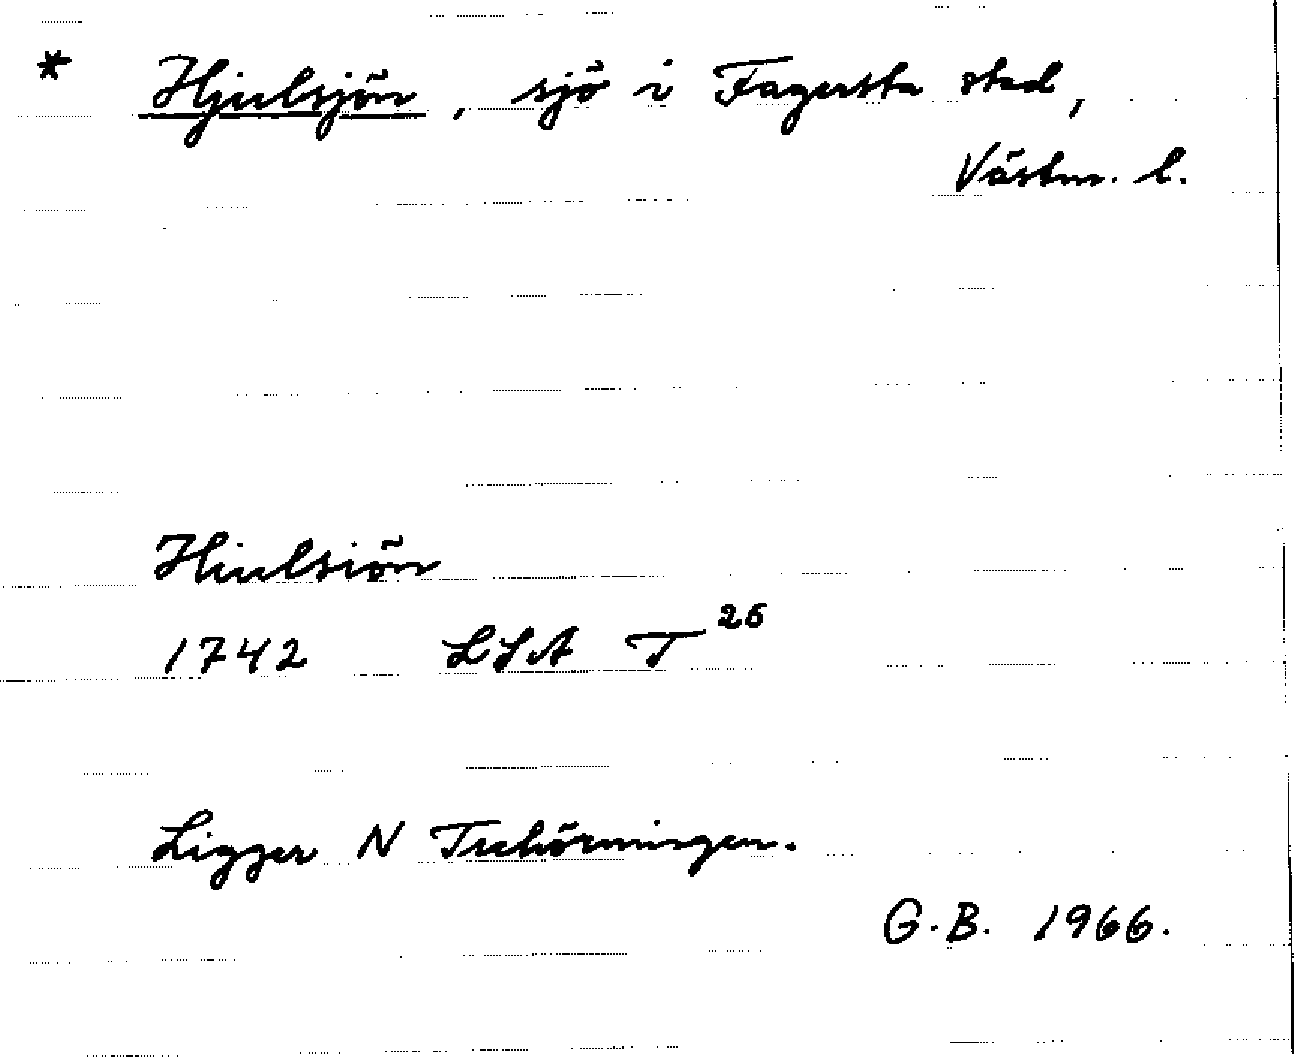 * Hjulsjön, sjö i Fagersta stad,
Västm. l.
Hiulsiön
1742 LSA T 26
Ligger N Trehörningen.
G.B. 1966.